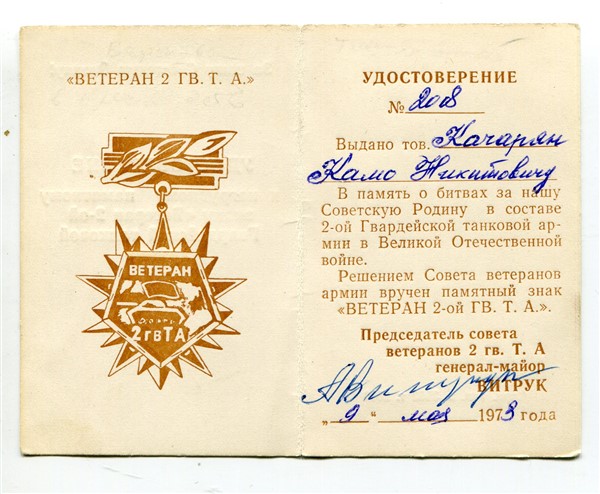 «ВЕТЕРАН 2 ГВ. Т. А.»
ВЕТЕРАН
2 гв ТА
УДОСТОВЕРЕНИЕ
№ 2008
Выдано тов. Качарян
Камо Никитовичу
В память о битвах за нашу
Советскую Родину в составе
2-ой Гвардейской танковой ар-
мии в Великой Отечественной
войне.
Решением Совета ветеранов
армии вручен памятный знак
«ВЕТЕРАН 2-ой ГВ. Т. А.».
Председатель совета
ветеранов 2 гв. Т. А
генерал-майор
ВИТРУК
„ 9 “ мая 1973 года